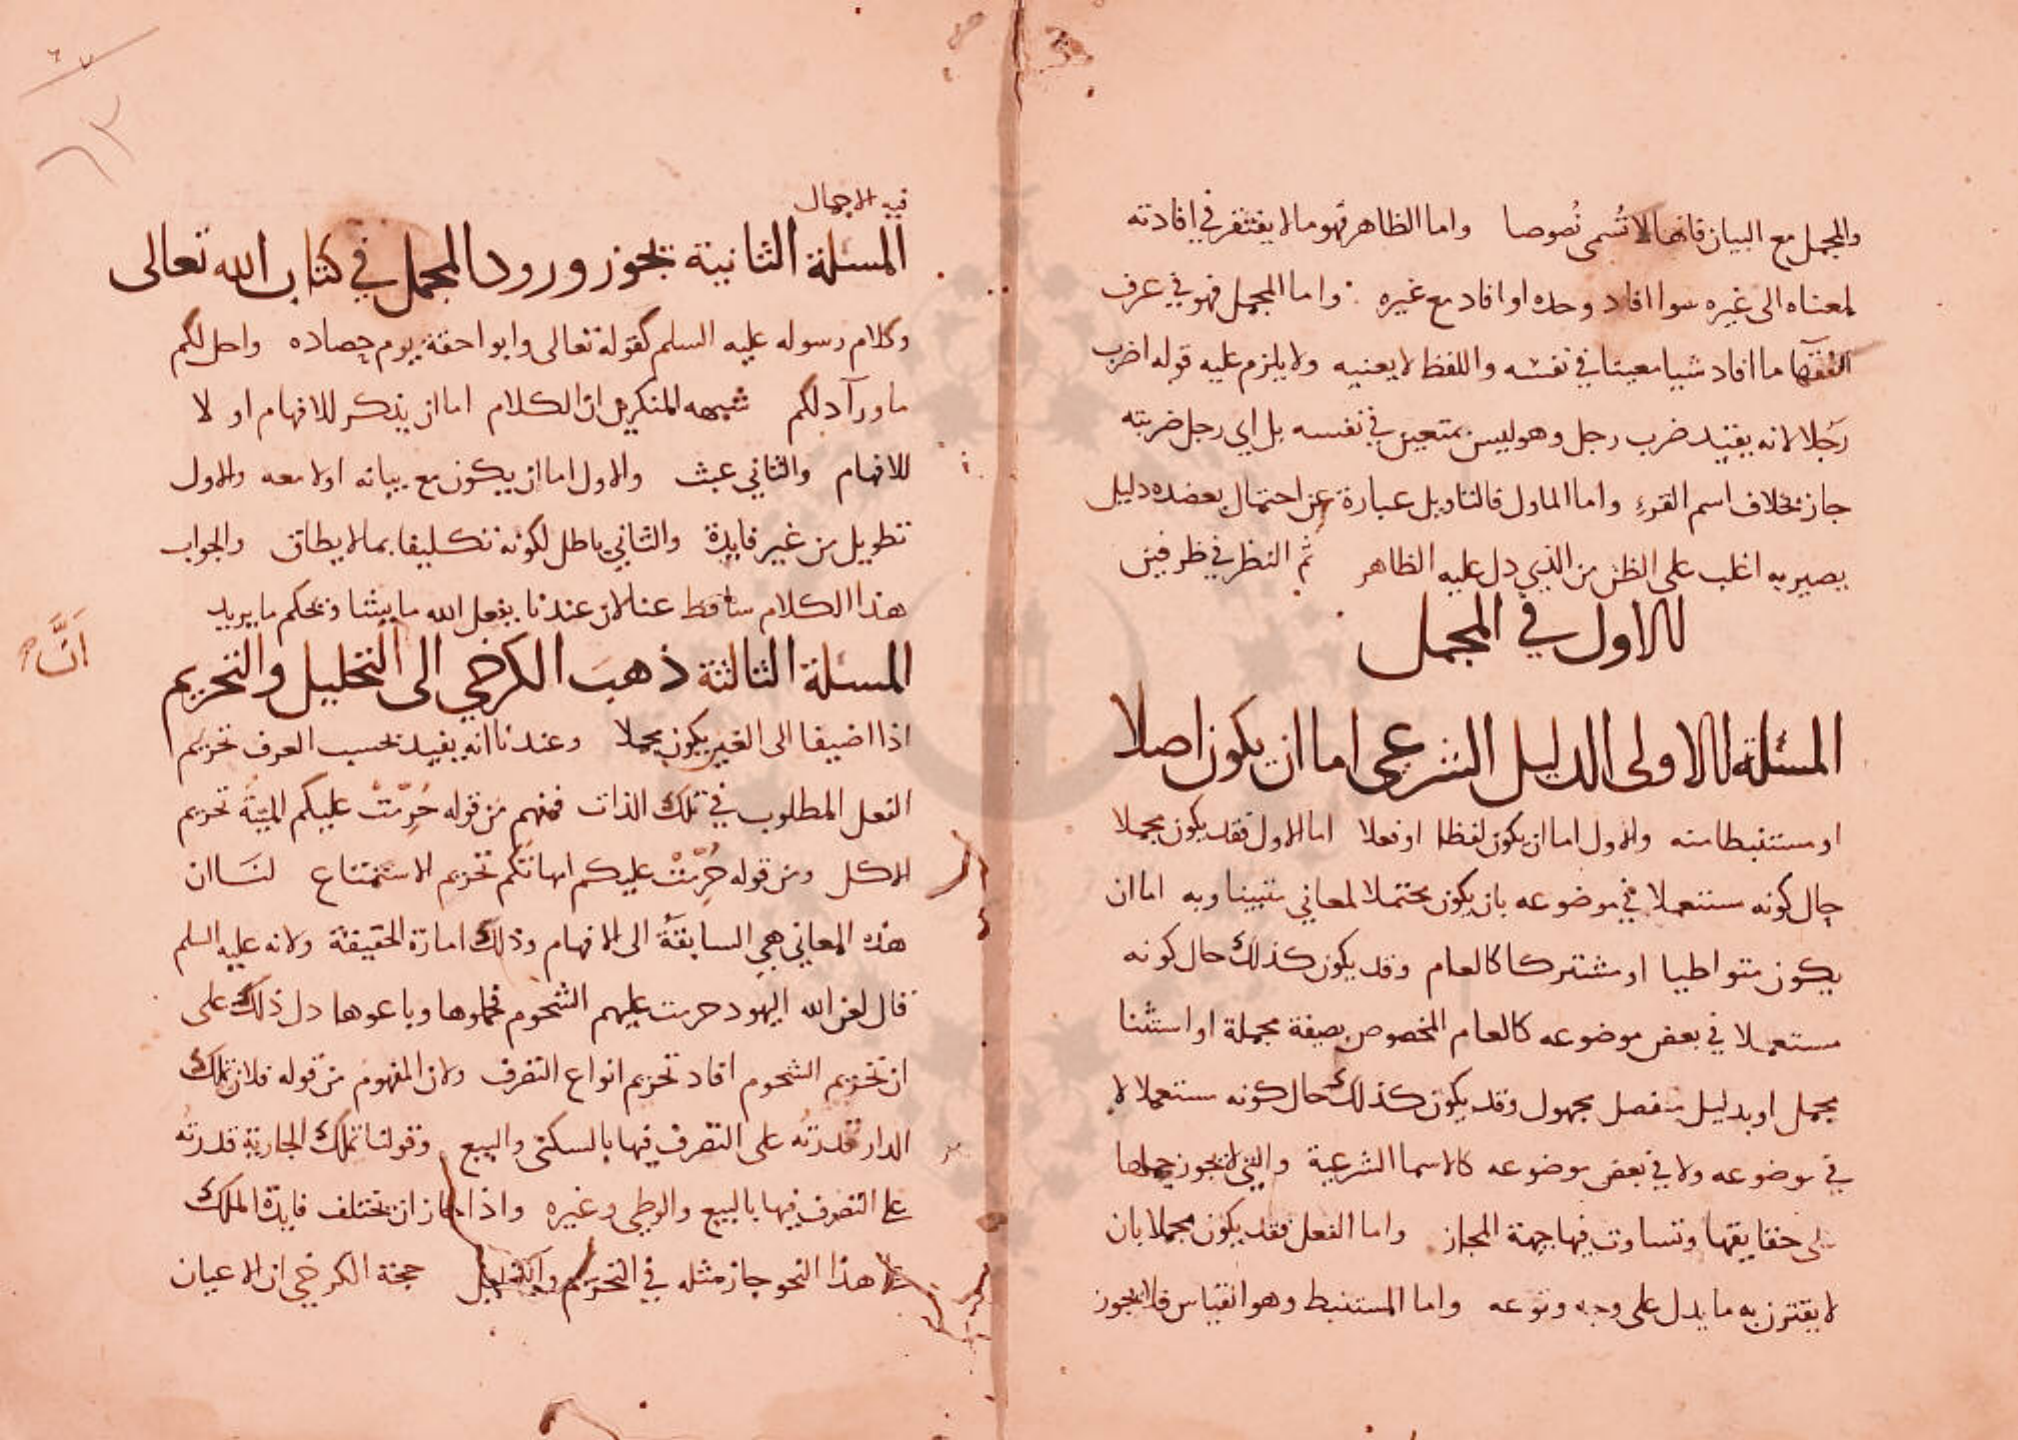 والمجمل مع البيان فانها لا تُسمى نُصوصا واما الظاهر فهو ما لا يفتقر في افادته
لمعناه الى غيره سوا افاد وحده او افاد مع غيره واما المجمل فهو في عرف
الفقها ما افاد شيا معينا في نفسه واللفظ لا يعنيه ولا يلزم عليه قوله اضرب
رَجُلا لانه يفيد ضرب رجل وهو ليس بمتعين في نفسه بل اي رجل ضربته
جاز بخلاف اسم القرء واما الماول فالتاويل عبارة عن احتمال يعضده دليل
يصير به اغلب على الظن من الذي دل عليه الظاهر ثم النظر في طرفين
الاول في المجمل
المسئلة الاولى الدليل الشرعي اما ان يكون اصلا
او مستنبطا منه والاول اما ان يكون لفظا او فعلا اما الاول فقد يكون مجملا
حال كونه مستعملا في موضوعه بان يكون محتملا لمعاني اما ان
يكون متواطيا او مشتركا كالعام وقد يكون كذلك حال كونه
مستعملا في بعض موضوعه كالعام المخصوص بصفة مجملة او استثنا
مجمل او بدليل منفصل مجهول وقد يكون كذلك حال كونه مستعملا لا
في موضوعه ولا في بعض موضوعه كالاسما الشرعية والتي لا يجوز حملها
على حقايقها وتساوت فيها جهة المجاز واما الفعل فقد يكون مجملا بان
لا يقترن به ما يدل على وجه وقوعه واما المستنبط وهو القياس فلا يجوز
٦٣
فيه الاجمال
المسئلة الثانية يجوز ورود المجمل في كتاب الله تعالى
وكلام رسوله عليه السلم كقوله تعالى واتوا حقه يوم حصاده واحل لكم
ما ورآ ذلكم شبهه المنكرين ان الكلام اما ان يذكر للافهام او لا
للافهام والثاني عبث والاول اما ان يكون مع بيانه او لا معه والاول
تطويل من غير فايدة والثاني باطل لكونه تكليفا بما لا يطاق والجواب
هذا الكلام ساقط عنا لان عندنا يفعل الله ما يشا ويحكم ما يريد
المسئلة الثالثة ذهبَ الكرخي الى التحليل والتحريم
انَّ
اذا اضيفا الى الغير يكون مجملا وعندنا انه يفيد بحسب العرف تحريم
الفعل المطلوب في تلك الذات فنفهم من قوله حُرِّمَتْ عليكم الميتَةُ تحريم
الاكل ومن قوله حُرِّمَتْ عليكم امهاتُكم تحريم الاستمتاع لنَا ان
هذه المعاني هي السابقةُ الى الافهام وذلك امارة الحقيقة ولانه عليه السلم
قال لعن الله اليهود حرمت عليهم الشحوم فجملوها وباعوها دل ذلك على
ان تحريم الشحوم افاد تحريم انواع التصرف ولان المفهوم من قوله فلان تملك
الدار قدرتُه على التصرف فيها بالسكنى والبيع وقولنا تملك الجارية قدرته
على التصرف فيها بالبيع والوطي وغيره واذا جاز ان تختلف فايدة الملك
على هذا النحو جاز مثله في التحريم والتحليل حجة الكرخي ان الاعيان